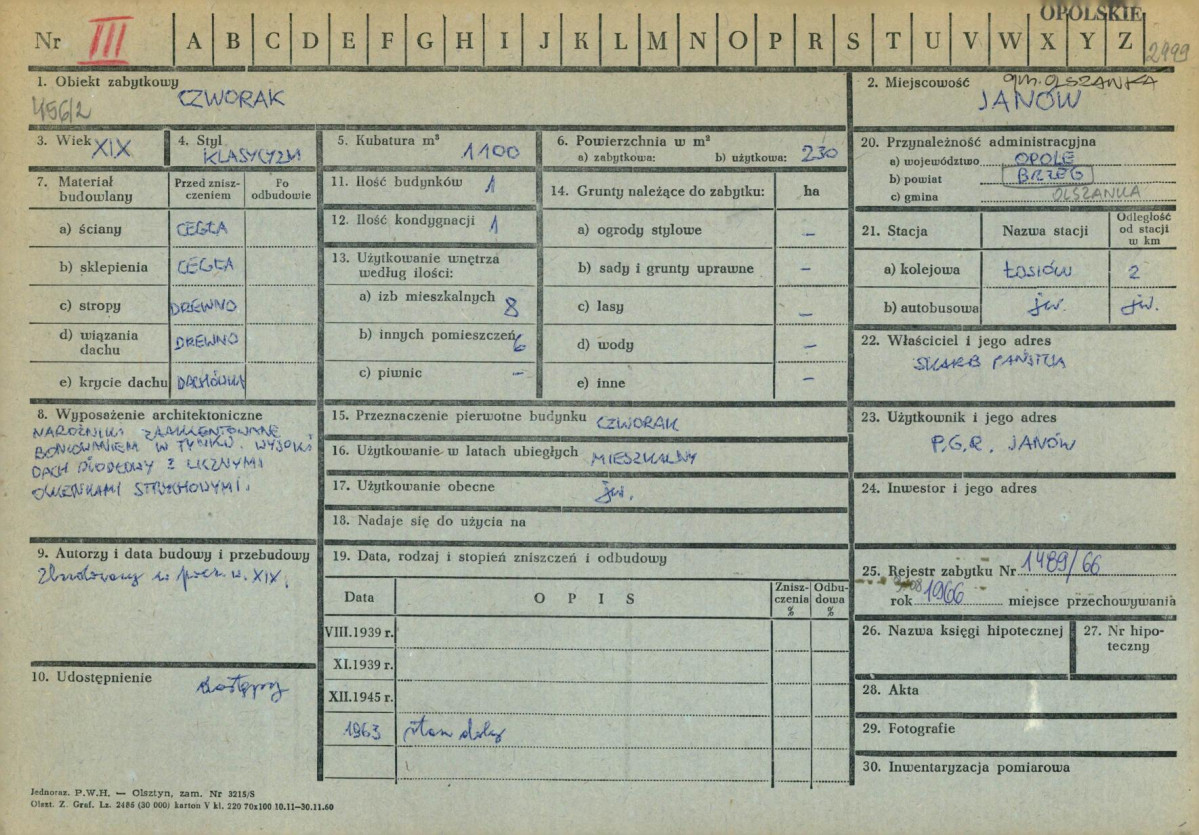 OPOLSKIE
Nr III A B C D E F G H I J K L M N O P R S T U V W X Y Z 2499
1. Obiekt zabytkowy
456/2 CZWORAK
2. Miejscowość gm. OLSZANKA
JANÓW
3. Wiek XIX
4. Styl
KLASYCYZM
5. Kubatura m³
1100
6. Powierzchnia w m²
a) zabytkowa: b) użytkowa: 230
20. Przynależność administracyjna
a) województwo OPOLE
b) powiat BRZEG
c) gmina OLSZANKA
7. Materiał budowlany
Przed zniszczeniem
Po odbudowie
a) ściany CEGŁA
b) sklepienia CEGŁA
c) stropy DREWNO
d) wiązania dachu DREWNO
e) krycie dachu DACHÓWKA
11. Ilość budynków 1
12. Ilość kondygnacji 1
13. Użytkowanie wnętrza
według ilości:
a) izb mieszkalnych 8
b) innych pomieszczeń 6
c) piwnic –
14. Grunty należące do zabytku: ha
a) ogrody stylowe –
b) sady i grunty uprawne –
c) lasy –
d) wody –
e) inne –
21. Stacja
Nazwa stacji
Odległość od stacji w km
a) kolejowa Łosiów 2
b) autobusowa jw. jw.
22. Właściciel i jego adres
SKARB PAŃSTWA
8. Wyposażenie architektoniczne
NAROŻNIKI ZAAKCENTOWANE
BONIOWANIEM W TYNKU. WYSOKI
DACH Z LICZNYMI
OKIENKAMI STRYCHOWYMI.
15. Przeznaczenie pierwotne budynku CZWORAK
16. Użytkowanie w latach ubiegłych MIESZKALNY
17. Użytkowanie obecne jw.
18. Nadaje się do użycia na
23. Użytkownik i jego adres
P.G.R. JANÓW
24. Inwestor i jego adres
9. Autorzy i data budowy i przebudowy
Zbudowany w pocz. w. XIX.
19. Data, rodzaj i stopień zniszczeń i odbudowy
Data
OPIS
Zniszczenia %
Odbudowa %
VIII.1939 r.
XI.1939 r.
XII.1945 r.
1963 stan dobry
10. Udostępnienie
dostępny
25. Rejestr zabytku Nr 1489/66
rok 1966 miejsce przechowywania
26. Nazwa księgi hipotecznej
27. Nr hipoteczny
28. Akta
29. Fotografie
30. Inwentaryzacja pomiarowa
Jednoraz. P.W.H. — Olsztyn, zam. Nr 3215/S
Olszt. Z. Graf. Lz. 2486 (30 000) karton V kl. 220 70x100 10.11—30.11.60